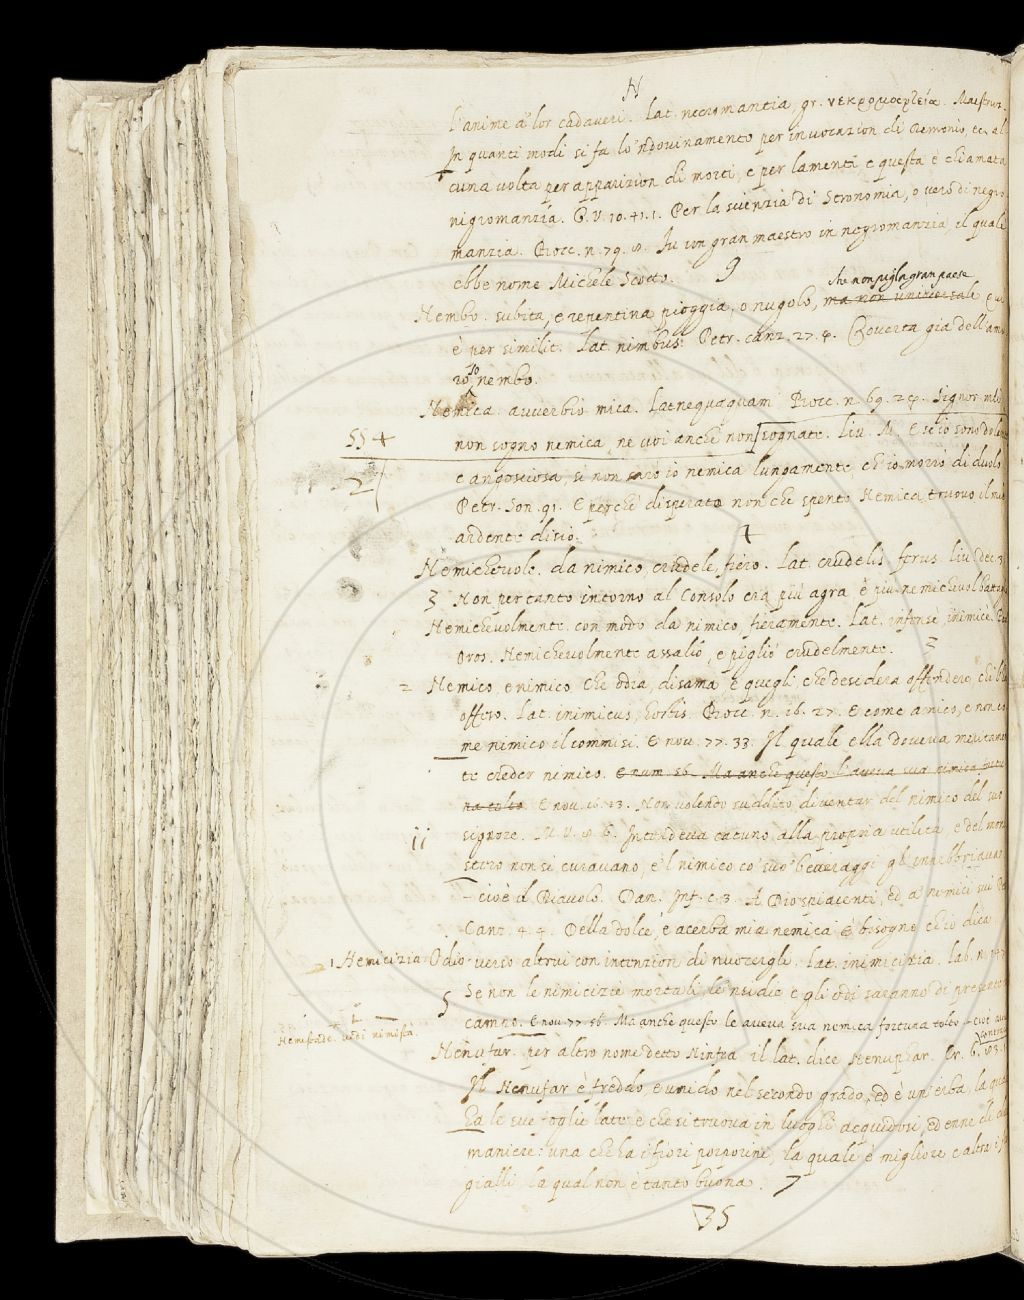 N
l'anime a' lor cadaveri. Lat. necromantia, gr. νεκρομαντεία. Maestruz.
In quanti modi si fa lo 'ndovinamento per invocazion di Demonio, ec. al
cuna volta per apparizion di morti, e per lamenti e questa è chiamata
nigromanzia. G.V. 10. 41. 1. Per la scienzia di Stronomia, o vero di negro
manzia. Bocc. n. 79. Fu un gran maestro in negromanzia il quale
ebbe nome Michele Scotto. 9
che non piglia gran paese
Nembo. subita, e repentina pioggia, o nugolo, ma non universale
è per similit. Lat. nimbus. Petr. canz. 27. 4. Coverta già dell'amo
roso nembo.
Nemica. avverbio mica. Lat. nequaquam Bocc. n. 69. 24. Signor mio
554
non sogno nemica, ne voi anche non sognate. Liv. M. E se io sono dolente
2
e angosciosa, si non saro io nemica lungamente, ch'io morrò di duolo
Petr. Son. 91. E perchè disperato non che spento Nemica truovo il mio
ardente disio.
4
Nemichevole. da nimico, crudele, fiero. Lat. crudelis ferus. Liv. dec. 3.
3 Non per tanto intorno al Consolo era più agra e più nemichevol battaglia
Nemichevolmente. con modo da nimico, fieramente. Lat. infense, inimice.
Oros. Nemichevolmente assalio, e pigliò crudelmente. 3
2 Nemico, e nimico che odia, disama, e quegli che desidera offendere, chi l'ha
offeso. Lat. inimicus, hostis. Bocc. n. 16. 27. E come amico, e non co
me nimico il commisi. E nov. 77. 33. Il quale ella doveva meritamen
te creder nimico. E num. 56. Ma anche questo l'aveva sua nimica fortu
na tolto. E nov. 16. 23. Non volendo suddito diventar del nimico del suo
signore. M. V. 8. 6. Intendeva catuno alla propria utilità, e del mon
ii
stero non si curavano, e 'l nimico co' suo' beveraggi gl'innebbriava
- cioè il Diavolo. Dan. Inf. c. 3. A Dio spiacenti, ed a' nemici sui
Canz. 4. 4. Della dolce, e acerba mia nemica È bisogno ch'io dica
1. Nemicizia Odio verso altrui con intenzion di nuocergli. Lat. inimicitia. Lab. n. 147
5 Se non le nimicizie mortali, le nsidie e gli odi saranno di presente in
campo. E nov. 77. 56. Ma anche questo le aveva sua nemica fortuna tolto - cioè
contra
Nemistade. vedi nimistà.
Nenufar. per altro nome detto Ninfea il lat. dice Nenuphar. Cr. 6. 83. 1
Il Nenufar è freddo, e umido nel secondo grado, ed è un'erba, la qua
ha le sue foglie late e che si truova in luoghi acquidosi, ed enne di
maniere: una che ha i fiori porporini, la quale è migliore e altra i fior
gialli la qual non è tanto buona. 7
35